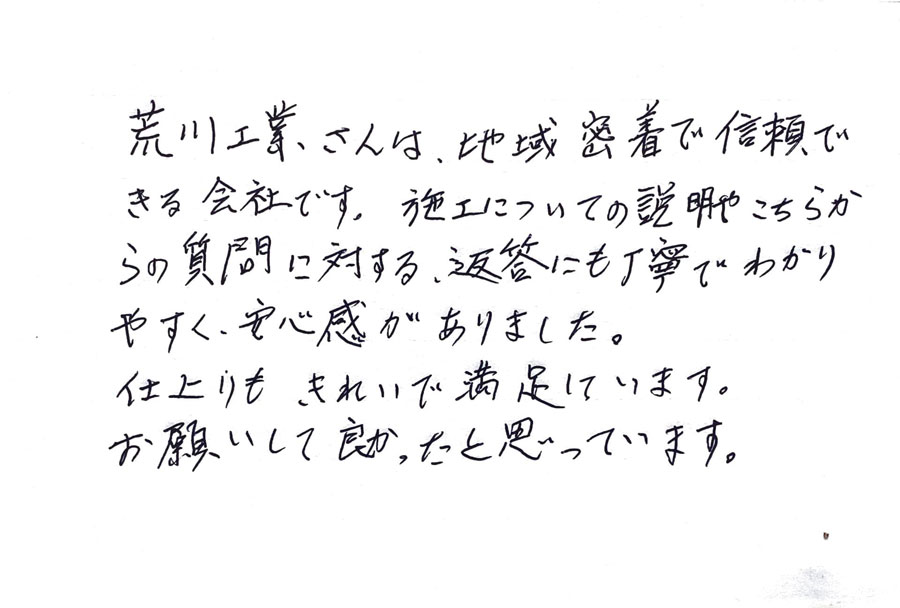 荒川工業、さんは、地域密着で信頼で
きる会社です。施工についての説明やこちらか
らの質問に対する、返答にも丁寧でわかり
やすく、安心感がありました。
仕上りもきれいで満足しています。
お願いして良かったと思っています。